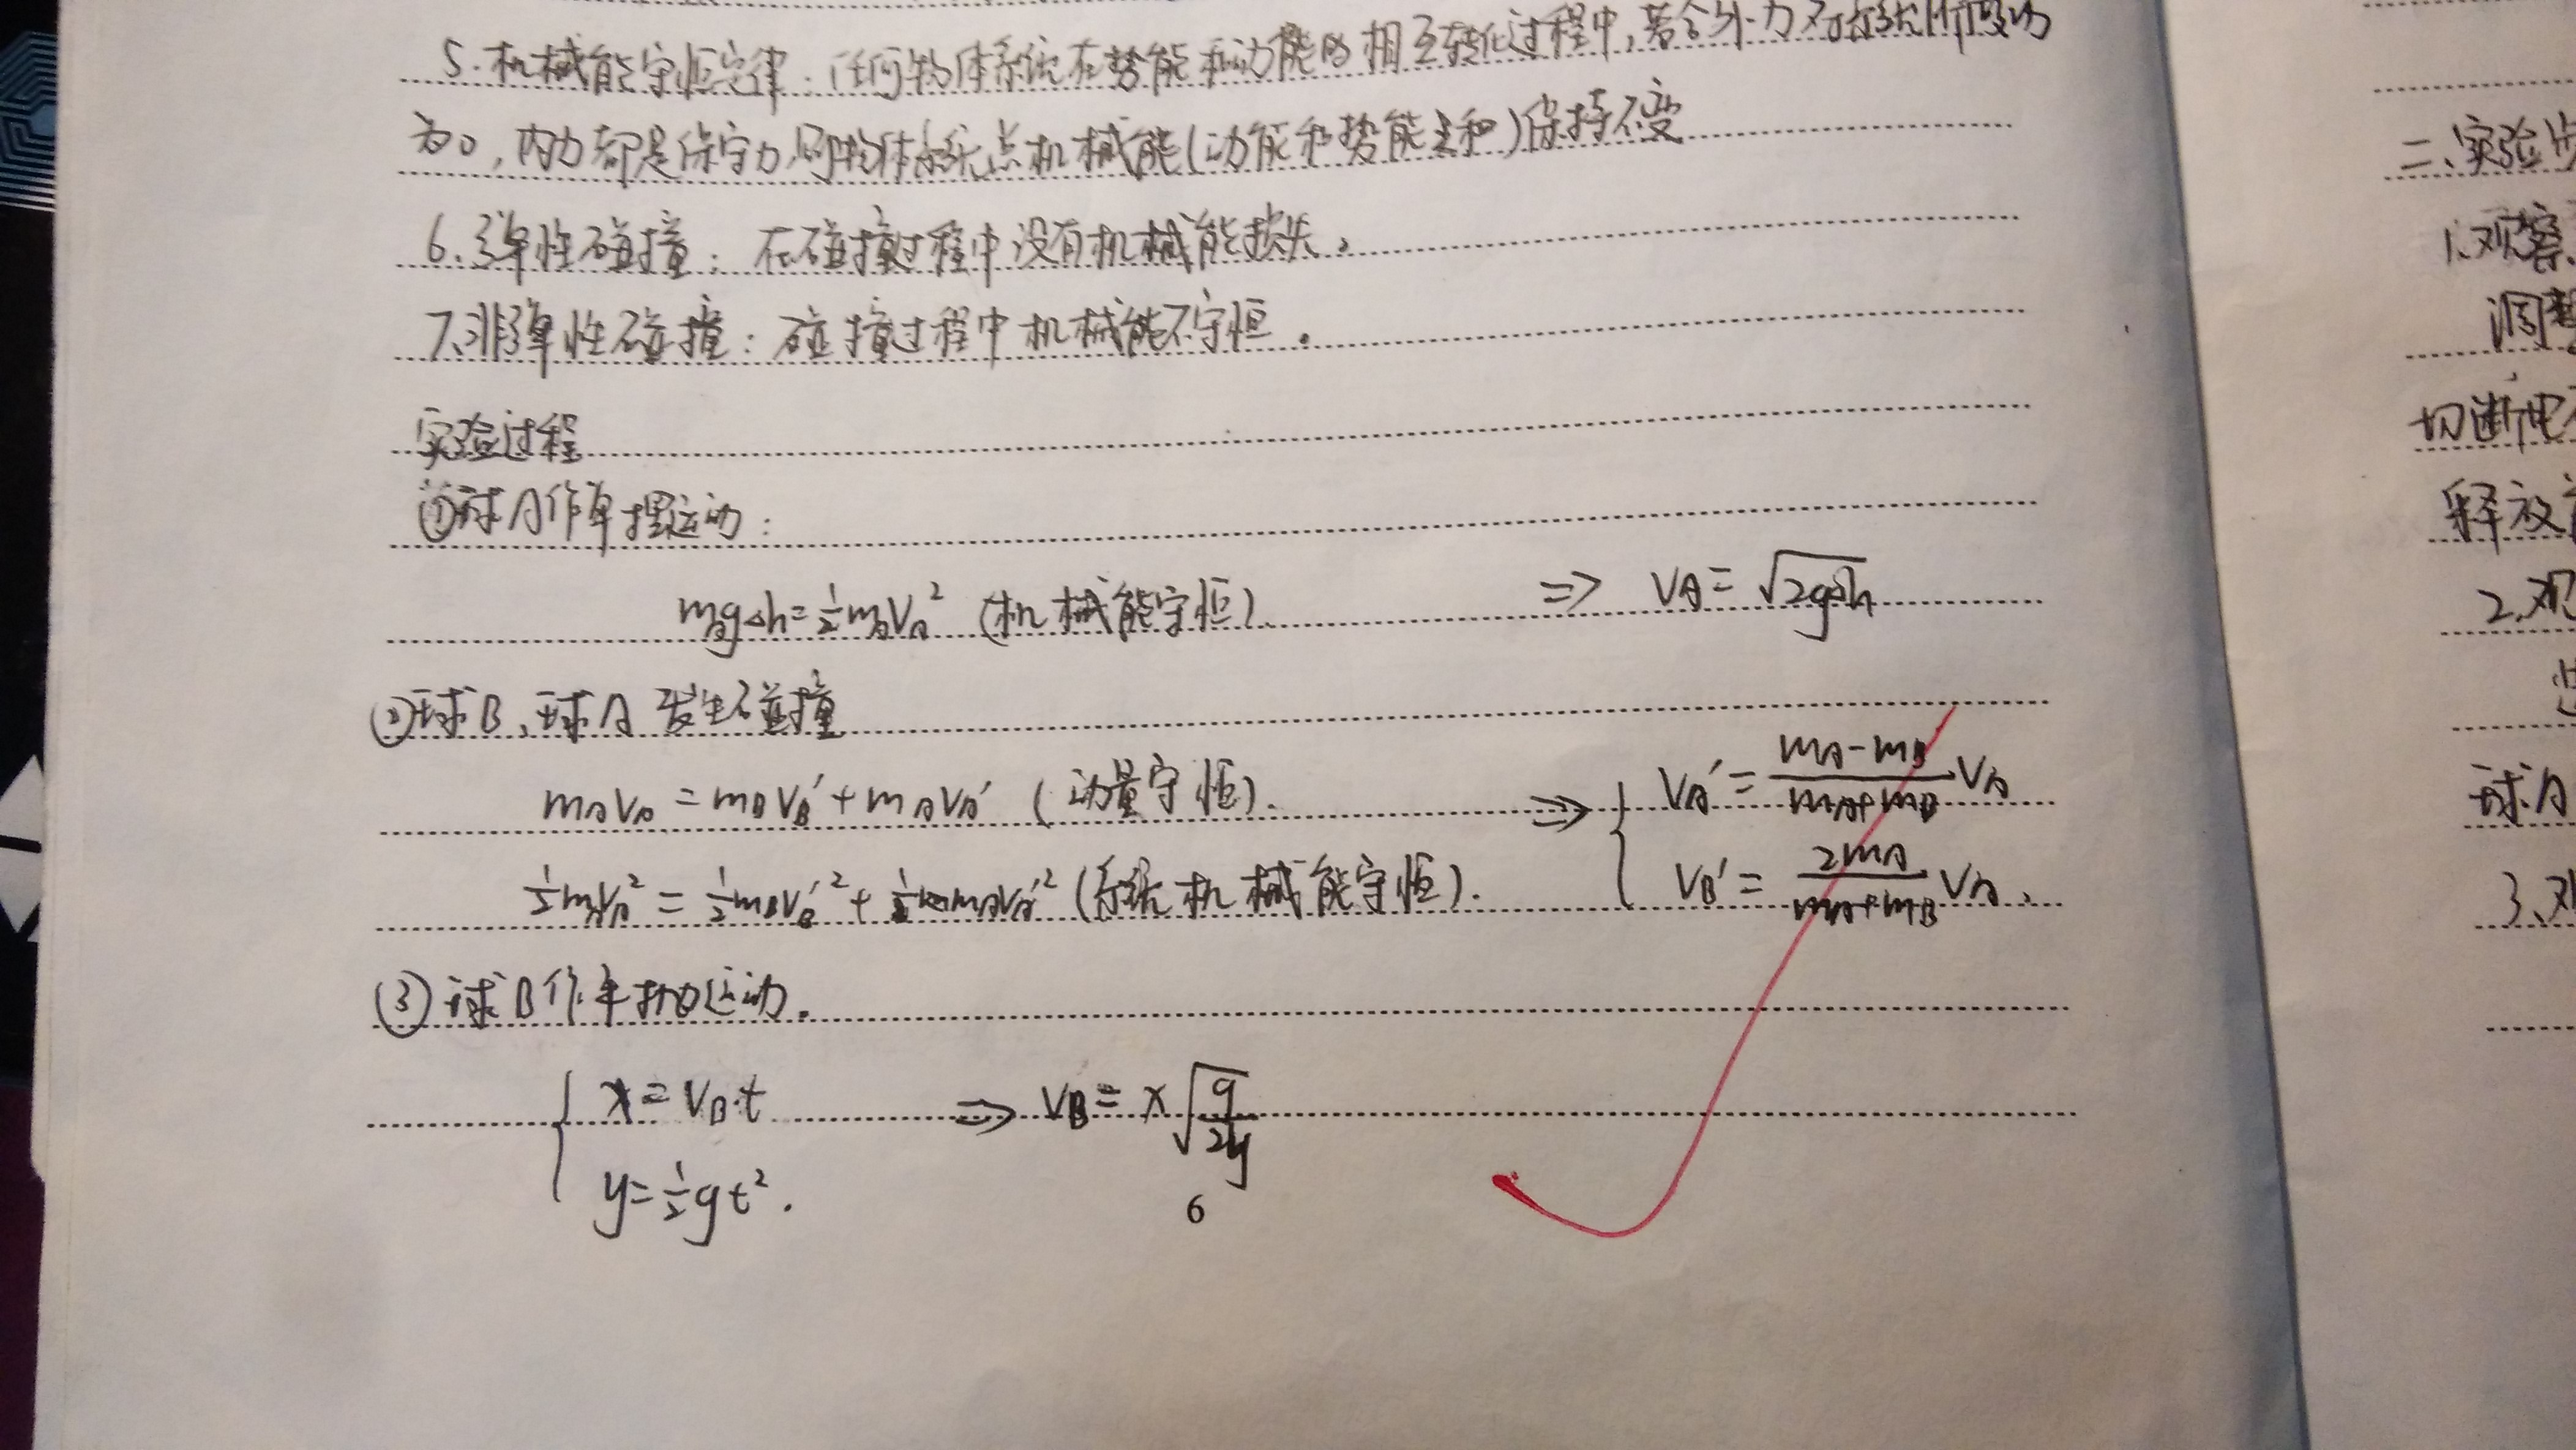 5.机械能守恒定律:任何物体系统在势能和动能的相互转化过程中,若合外力对该系统所做功
为0,内力都是保守力,则物体系统总机械能(动能和势能之和)保持不变
6.弹性碰撞:在碰撞过程中没有机械能损失。
7.非弹性碰撞:碰撞过程中机械能不守恒。
实验过程
①球A作单摆运动:
m_A g△h=½m_A V_A² (机械能守恒) => V_A=√(2g△h)
②球B,球A发生碰撞
m_A V_A=m_B V_B'+m_A V_A' (动量守恒). => { V_A'=(m_A-m_B)/(m_A+m_B) V_A
½m_A V_A²=½m_B V_B'²+½m_A V_A'² (系统机械能守恒). V_B'=2m_A/(m_A+m_B) V_A.
③球B作平抛运动.
{ x=V_B·t => V_B=x√(g/2y)
y=½gt².
6
二、实验步
1.观察
调整
切断电
释放
2.观
球A
3.观